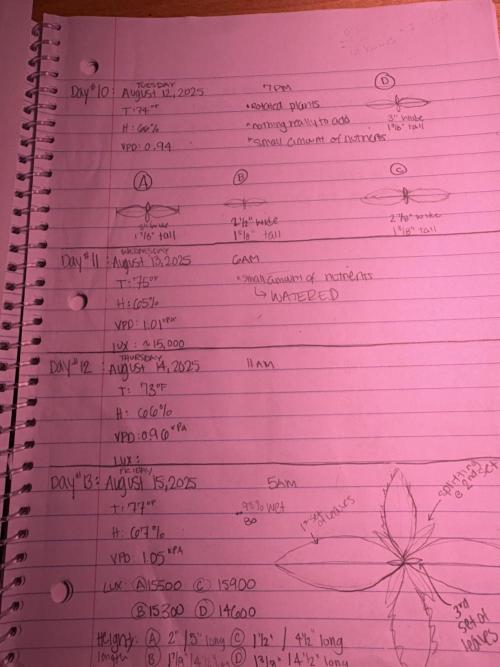 TUESDAY
Day #10: August 12, 2025 7PM
D
T: 74°F *Rotated plants
H: 66% *nothing really to add 3" wide
1 3/8" tall
VPD: 0.94 *Small amount of nutrients
A B C
3" wide 2 1/2" wide
tall 1 5/8" tall tall
WEDNESDAY
Day #11: August 13, 2025 6AM
T: 75°F *Small amount of nutrients
H: 65% ↳ WATERED
VPD: 1.01 KPA
LUX: ~15,000
THURSDAY
Day #12 August 14, 2025 11AM
T: 73°F
H: 66%
VPD: 0.96 KPA
LUX:
FRIDAY
Day #13: August 15, 2025 5AM
T: 77°F wet
80
H: 67%
VPD: 1.05 KPA
1st set of leaves
splitting @ 2nd set
3rd set of leaves
LUX: A 15500 C 15900
B 15300 D 14600
Height: A 2" / 5" long C 1 1/2" / 4 1/2" long
length B 1 7/8" / D 1 3/8" / 4 1/2" long